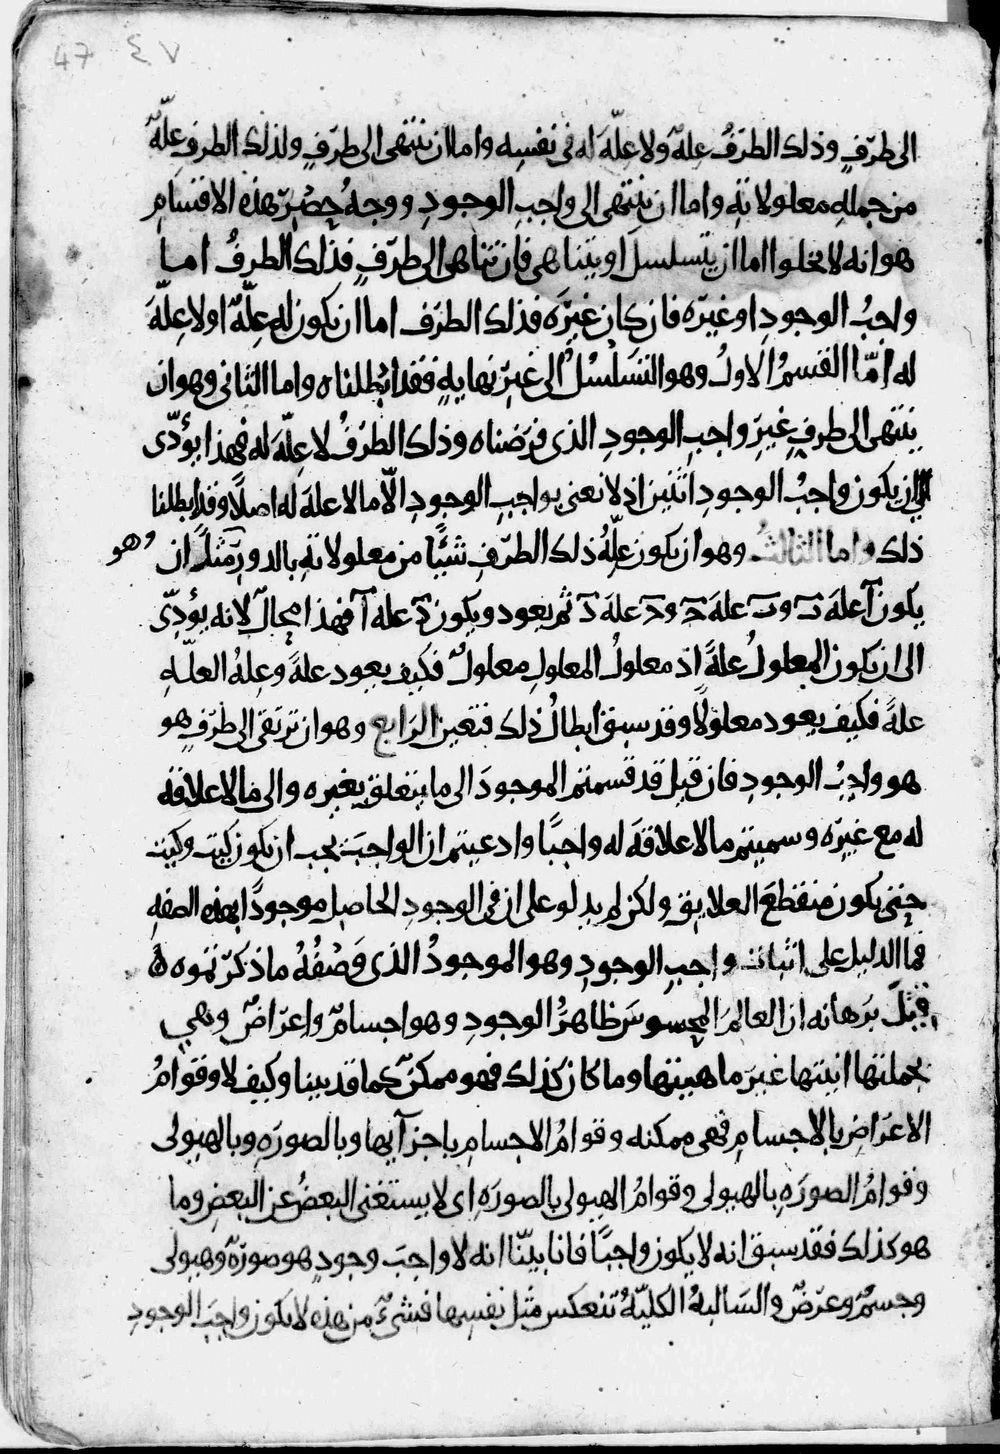 47 ٤٧
الى طرَفٍ وذلك الطرَفُ علةٌ ولا علّةَ له فى نفسِه واما ان ننتهى الى طرَفٍ ولذلك الطرف علّةٌ
من جملهِ معلولاتهِ واما ان ننتهى الى واجبِ الوجودِ ووجهُ حصْرِ هذه الاقسامِ
هو انه لا يخلوا اما ان يتسلسلَ او يتناهى فان تناهى الى طرَفٍ فذلك الطرفُ اما
واجبُ الوجودِ او غيرَه فان كان غيرَه فذلك الطرَف اما ان يكون له علّةٌ او لا علّةَ
له امّا القسمُ الاولُ وهو التسَلْسُلُ الى غيرِ نهايهٍ فقد ابطلناه واما الثانى وهو ان
ينتهى الى طرفٍ غيرِ واجبِ الوجودِ الذى فرَضناه وذلك الطرَفُ لا علّةَ له فهذا يؤدّى
الى ان يكون واجبُ الوجودِ اثنين اذ لا نعنى بواجبِ الوجودِ الّا ما لا علةَ له اصلًا وقد ابطلنا
ذلك واما الثالثُ وهو ان يكون علّةُ ذلك الطرَفِ شيئًا من معلولاتهِ بالدورِ مثلًا ان وهو
يكون آ علةَ بَ وبَ علةَ جَ وجَ علةَ دَ ثم يعود ويكون دَ علة آ فهذا محالٌ لانه يؤدّى
الى ان يكون المعلولُ علةً اذ معلولُ المعلولِ معلولٌ فكيف يعود علةً وعلةُ العلّةِ
علةً فكيف يعود معلولًا وقد سبق ابطالُ ذلك فتعين الرابع وهو ان ترتقى الى طرَفٍ هو
هو واجبُ الوجودِ فان قيل قد قسمتم الموجودَ الى ما يتعلق بغيره والى ما لا علاقة
له مع غيرَه وسميتم ما لا علاقةَ له واجبًا وادعيتم ان الواجبَ يجب ان يكون كيت وكيت
حتى يكون منقطعَ العلايقِ ولكن لم يدلو على ان فى الوجودِ الحاصلِ موجودًا بهذه الصفهِ
فما الدليل على اثبات واجبِ الوجودِ وهو الموجودُ الذى وَصْفُهُ ما ذكرتموه ه
قيْلَ برَهانه ان العالمَ المحسوسَ ظاهرُ الوجودِ وهو اجسامٌ واعرَاضٌ وهى
بجملتها انيتها غيرَ ماهيتها وما كان كذلك فهو ممكنٌ كما قد بينا وكيف لا وقوامُ
الاعرَاضِ بالاجسامِ فهى ممكنه وقوامُ الاجسامِ باجزآيها وبالصورَهِ وبالهيولى
وقوامُ الصورَهِ بالهيولى وقوامُ الهيولى بالصورَهِ اى لا يستغنى البعضُ عن البعضِ وما
هو كذلك فقد سبق انه لا يكون واجبًا فانا بيّنّا انه لا واجبَ وجودٍ هو صورَةٌ وهيولى
وجسمٌ وعرَضٌ والسَالبهُ الكليّهُ تنعكس مثل نفسِها فشىءٌ من هذه لا يكون واجبَ الوجودِ